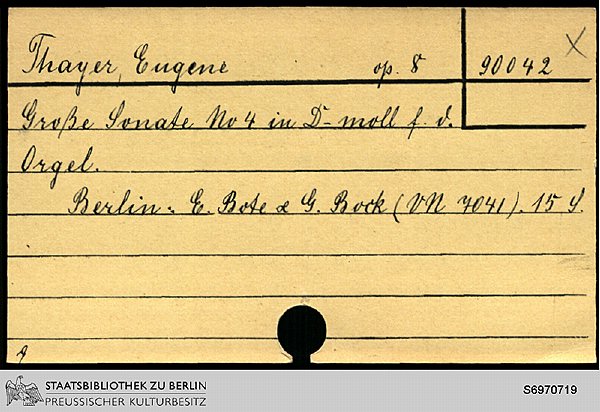 Thayer, Eugene op. 8 90042 X
Große Sonate No 4 in D-moll f. d.
Orgel.
Berlin: E. Bote & G. Bock (VN 7041). 15 S.
STAATSBIBLIOTHEK ZU BERLIN
PREUSSISCHER KULTURBESITZ
S6970719